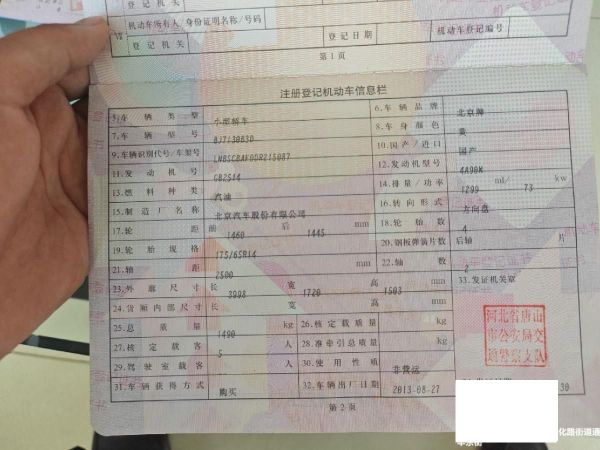 机动车所有人/身份证明名称/号码
Ⅶ
登记机关
登记日期
机动车登记编号
第1页
注册登记机动车信息栏
5.车辆类型 小型轿车
6.车辆品牌 北京牌
7.车辆型号 BJ7130B3D
8.车身颜色 黄
9.车辆识别代号/车架号 LNBSCBAF0DR215087
10.国产/进口 国产
11.发动机号 GB2514
12.发动机型号 4A90M
13.燃料种类 汽油
14.排量/功率 1299 ml/ 73 kw
15.制造厂名称 北京汽车股份有限公司
16.转向形式 方向盘
17.轮距 前 1460 后 1445 mm
18.轮胎数 4
19.轮胎规格 175/65R14
20.钢板弹簧片数 后轴 片
21.轴距 2500 mm
22.轴数 2
23.外廓尺寸 长 3998 宽 1720 高 1503 mm
33.发证机关章
24.货厢内部尺寸 长 宽 高 mm
25.总质量 1490 kg
26.核定载质量 kg
27.核定载客 5 人
28.准牵引总质量 kg
29.驾驶室载客 人
30.使用性质 非营运
31.车辆获得方式 购买
32.车辆出厂日期 2013-08-27
河北省唐山
市公安局交
通警察支队
30
第2页
化路街道通